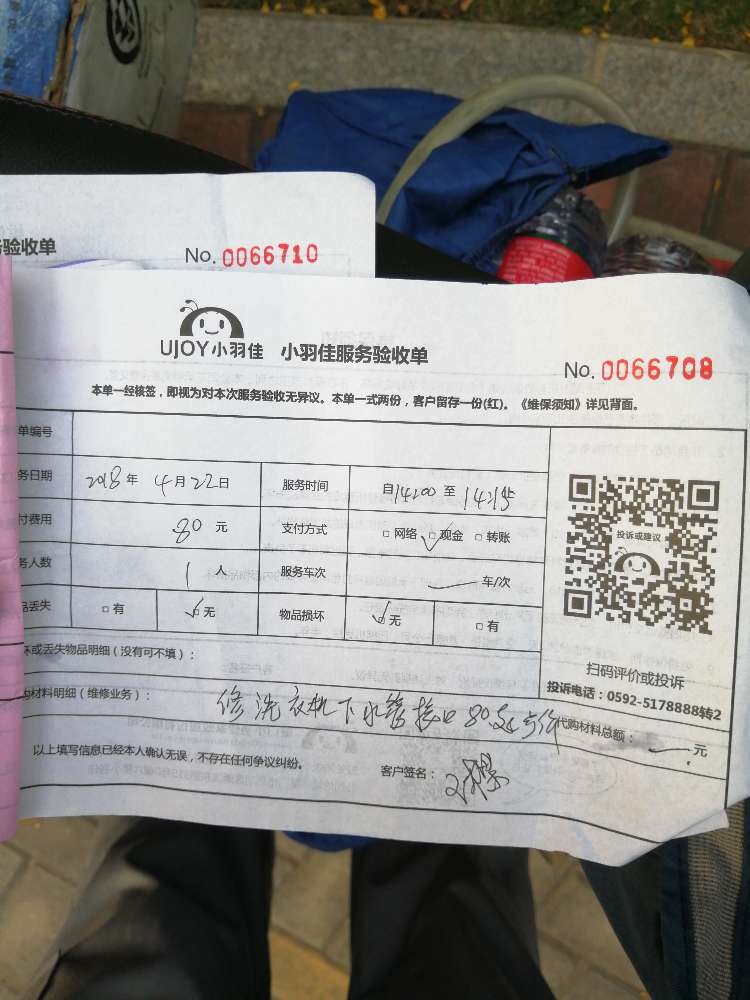 务验收单
No. 0066710
UJOY小羽佳 小羽佳服务验收单
No. 0066708
本单一经核签，即视为对本次服务验收无异议。本单一式两份，客户留存一份(红)。《维保须知》详见背面。
单编号
务日期 2018年 4月22日 服务时间 自14:00 至 14:15
付费用 80 元 支付方式 □网络 ☑现金 □转账
务人数 1 人 服务车次 车/次
品丢失 □有 ☑无 物品损坏 ☑无 □有
投诉或建议
扫码评价或投诉
投诉电话：0592-5178888转2
坏或丢失物品明细（没有可不填）：
购材料明细（维修业务）： 修洗衣机下水管接口80元
代购材料总额： 元
以上填写信息已经本人确认无误，不存在任何争议纠纷。
客户签名：